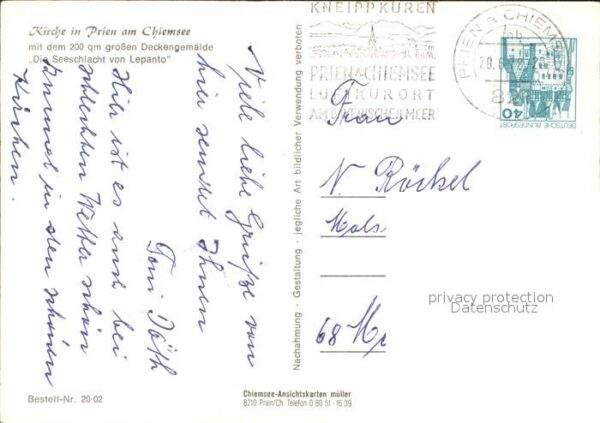 Kirche in Prien am Chiemsee
mit dem 200 qm großen Deckengemälde
„Die Seeschlacht von Lepanto"
Viele liebe Grüße von
hier sendet Ihnen
Toni
Hier ist es auch bei
schlechtem Wetter schön
zumal in den schönen
Kirchen.
Bestell-Nr. 20-02
Nachahmung - Gestaltung - jegliche Art bildlicher Verwendung verboten
Chiemsee-Ansichtskarten müller
8210 Prien/Ch. Telefon 0 80 51 - 16 39
KNEIPPKUREN
PRIEN A CHIEMSEE
LUFTKURORT
AM BAYERISCHEN MEER
PRIEN A CHIEMSEE
DEUTSCHE BUNDESPOST
40
Frau
N. Röckel
68
privacy protection
Datenschutz